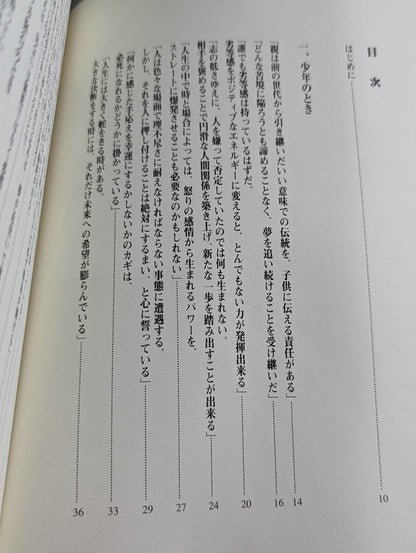 目 次
はじめに 10
一、少年のとき
「親は前の世代から引き継いだいい意味での伝統を、子供に伝える責任がある」 14
「どんな苦境に陥ろうとも諦めることなく、夢を追い続けることを受け継いだ」 16
「誰でも劣等感は持っているはずだ。
劣等感をポジティブなエネルギーに変えると、とんでもない力が発揮出来る」 20
「志の低さゆえに、人を嫌って否定していたのでは何も生まれない。
相手を褒めることで円滑な人間関係を築き上げ、新たな一歩を踏み出すことが出来る」 24
「人生の中で時と場合によっては、怒りの感情から生まれるパワーを、
ストレートに爆発させることも必要なのかもしれない」 27
「人は色々な場面で理不尽さに耐えなければならない事態に遭遇する。
しかし、それを人に押し付けることは絶対にするまい、と心に誓っている」 29
「何かに感じた手応えを幸運にするかしないかのカギは、
必死になれるかどうかに掛かっている」 33
「人生には大きく舵をきる時がある。
大きな決断をする時には、それだけ未来への希望が膨らんでいる」 36